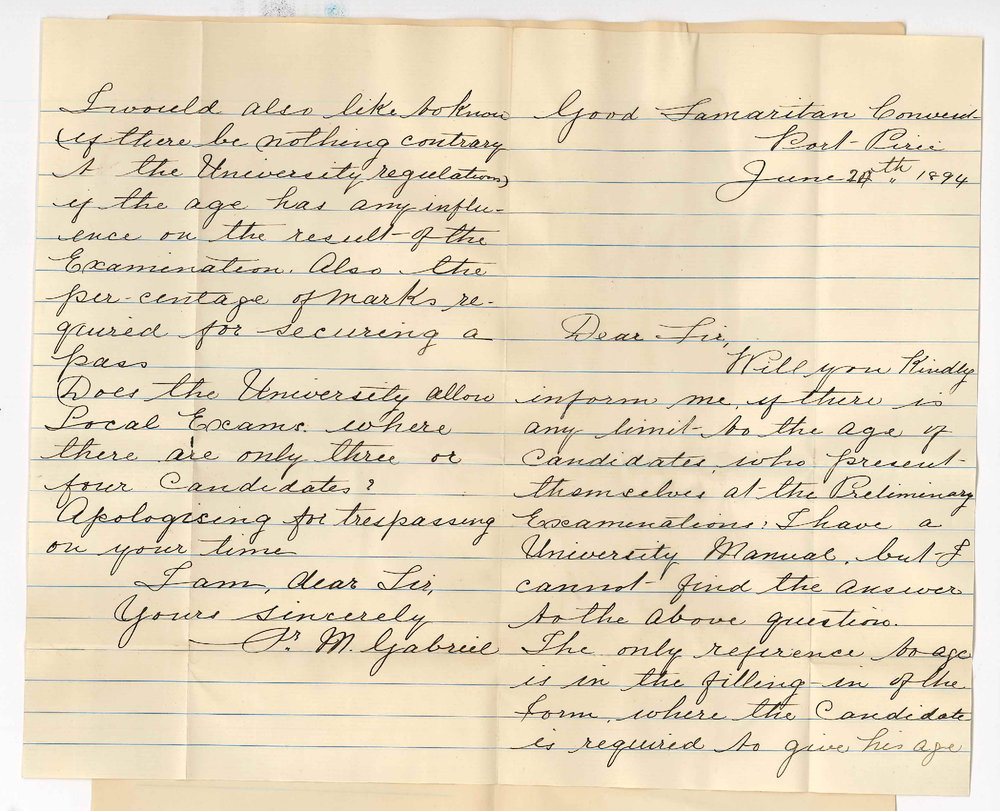 Good Samaritan Convent
Port Pirie
June 20th 1894
Dear Sir,
Will you Kindly
inform me, if there is
any limit to the age of
Candidates, who present
themselves at the Preliminary
Examinations; I have a
University Manual, but I
cannot find the answer
to the above question.
The only reference to age
is in the filling-in of the
Form, where the Candidate
is required to give his age
I would also like to know
(if there be nothing contrary
to the University regulations)
if the age has any influ-
ence on the result of the
Examination. Also the
per-centage of marks re-
quired for securing a
pass
Does the University allow
Local Exams. where
there are only three or
four Candidates?
Apologising for trespassing
on your time
I am, dear Sir,
Yours sincerely
Sr. M. Gabriel